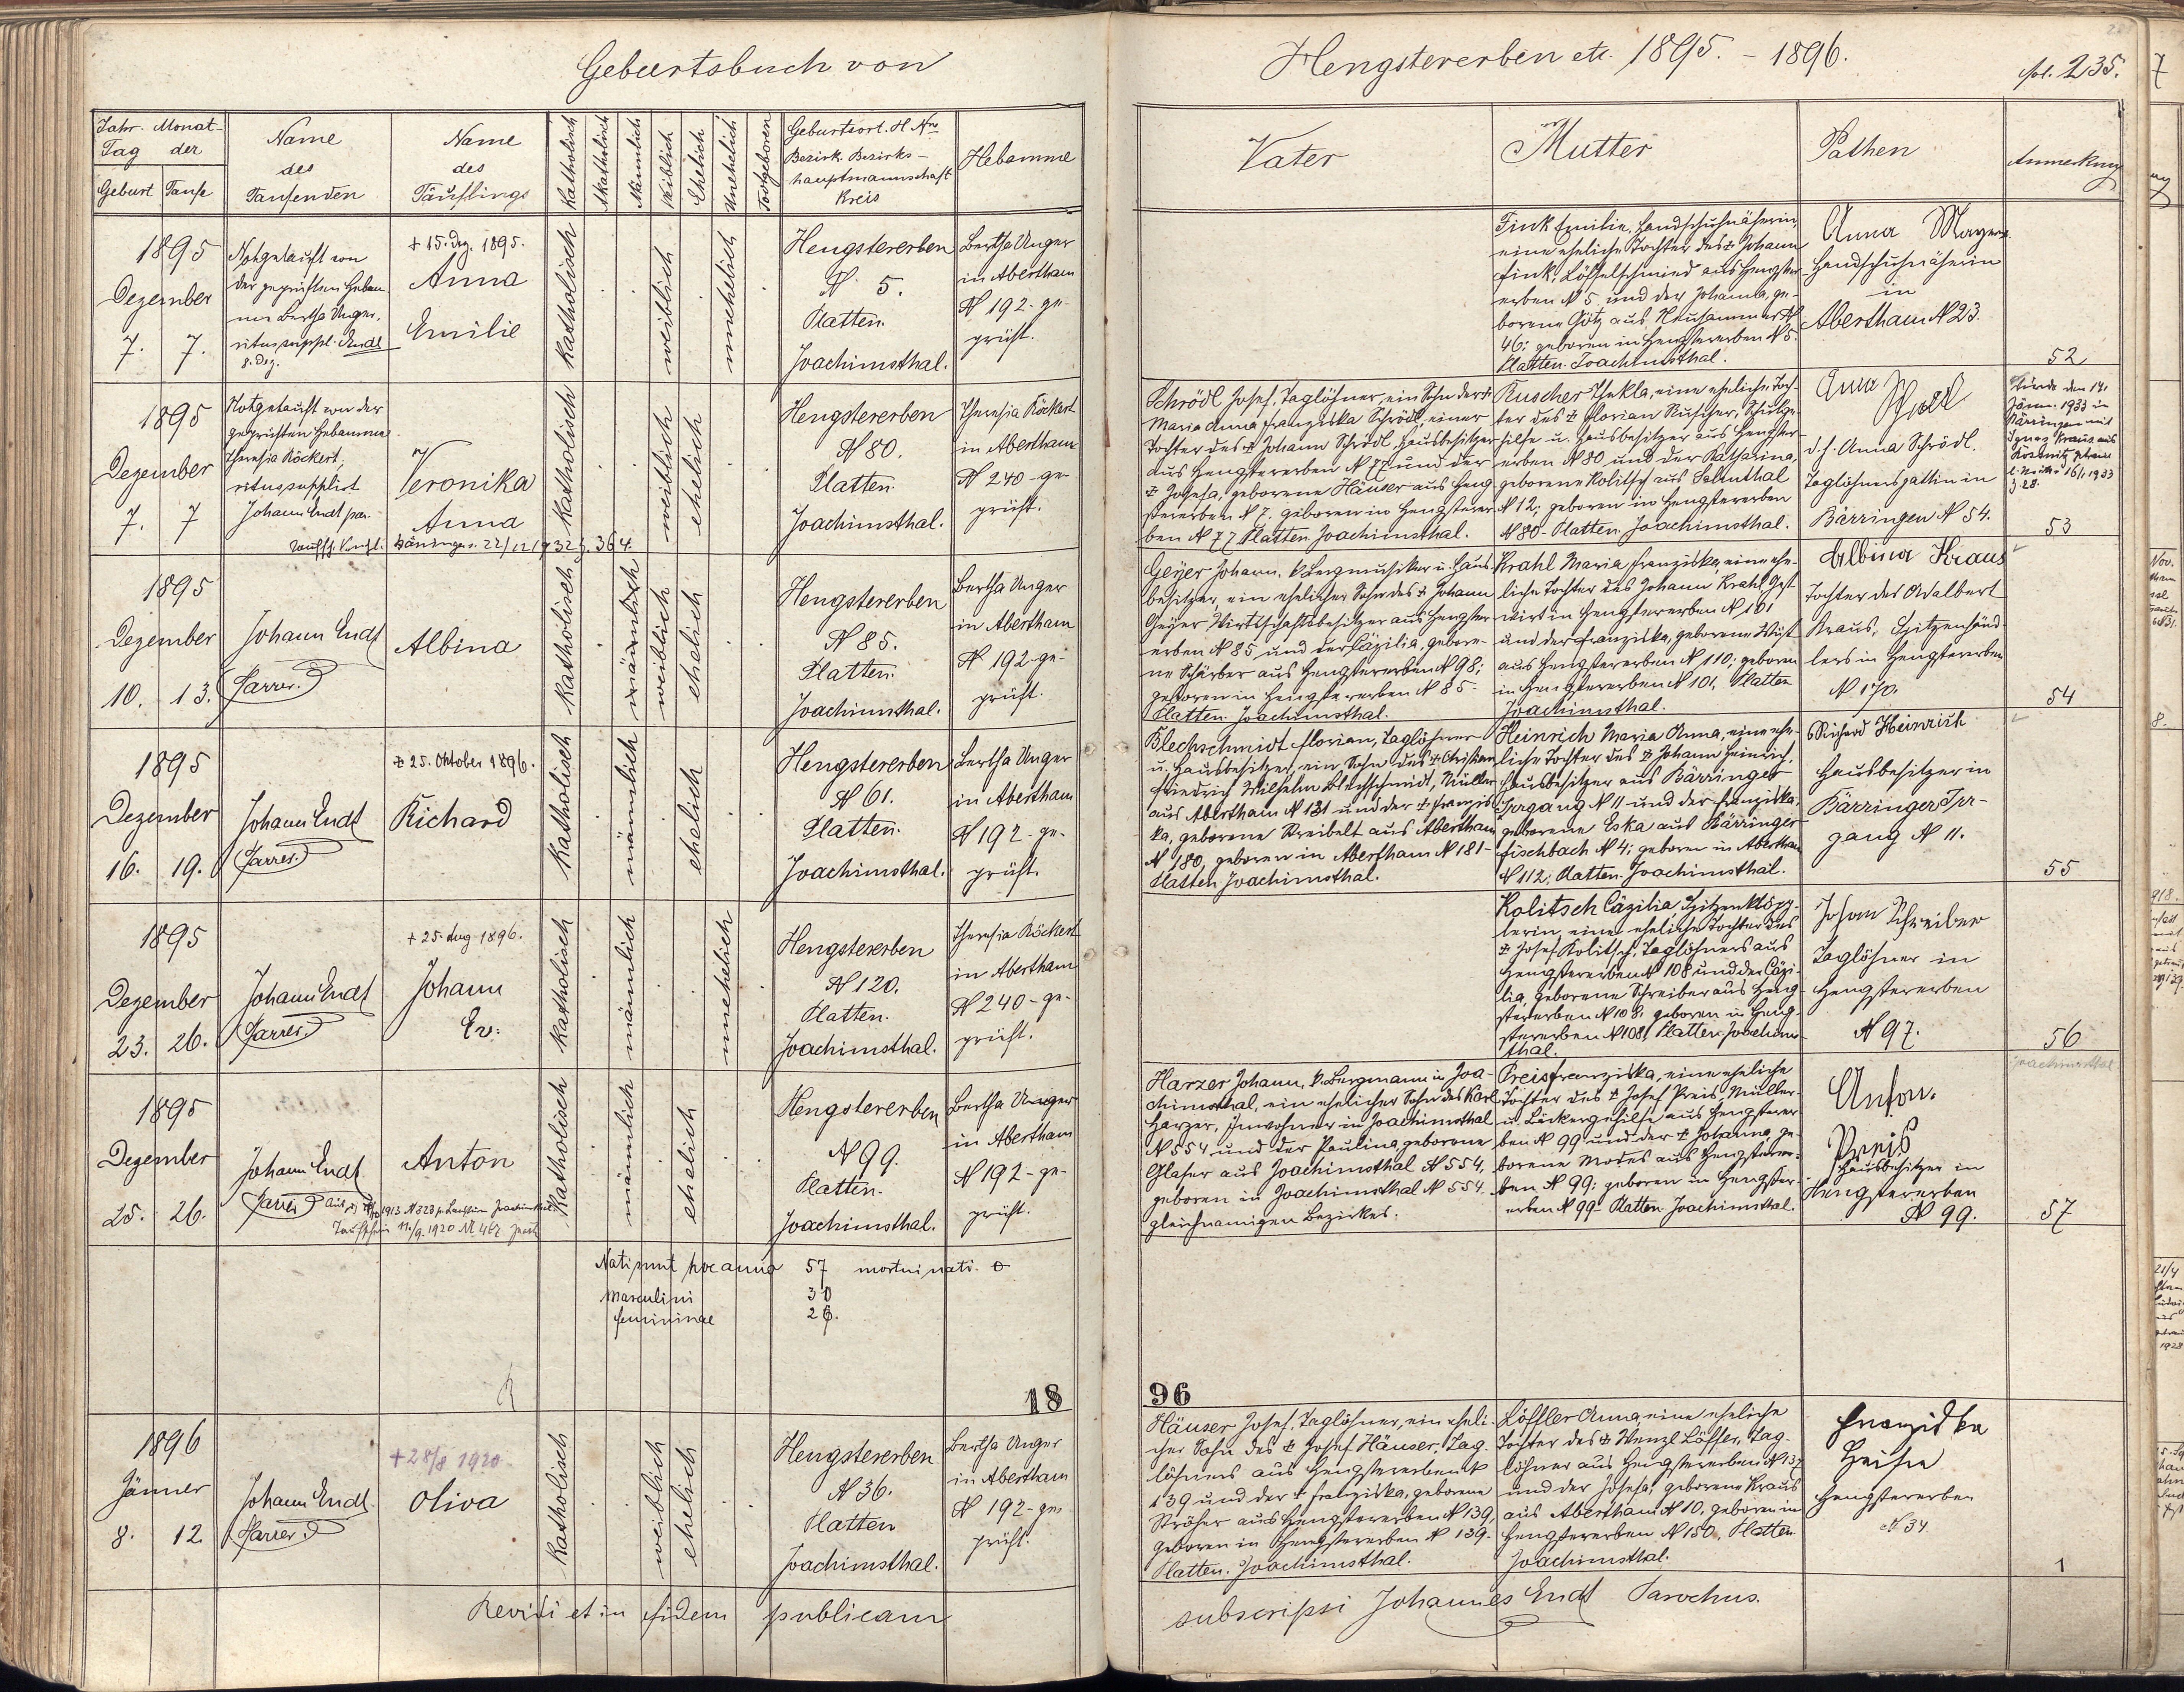 Geburtsbuch von
Hengstererben etc. 1895. - 1896.
fol. 235.
Jahr. Monat-
Tag der
Geburt Taufe
Name
des
Taufenden
Name
des
Täuflings
Katholisch
Akatholisch
Männlich
Weiblich
Ehelich
Unehelich
Todtgeboren
Geburtsort. H. Nro
Bezirk. Bezirks-
hauptmannschaft
Kreis
Hebamme
Vater
Mutter
Pathen
Anmerkung
1895
Dezember
7. 7.
Nothgetauft von
der geprüften Hebam-
me Bertha Unger,
ritus suppl. Endt
8. Dez.
+ 15. Dez. 1895.
Anna
Emilie
katholisch
weiblich
unehelich
Hengstererben
N 5.
Platten.
Joachimsthal.
Bertha Unger
in Abertham
N 192 - ge-
prüft.
Fink Emilie, Handschuhnäherin,
eine eheliche Tochter des + Johann
Fink, Löffelschmied aus Hengster-
erben N 5 und der Johanna, ge-
borene Götz aus Neuhammer N
46; geboren in Hengstererben N 5.
Platten. Joachimsthal.
Anna Mayer
Handschuhnäherin
in
Abertham N 23.
52
1895
Dezember
7. 7
Notgetauft von der
geprüften Hebamme
Theresia Röckert,
ritus supplirt
Johann Endt par.
Veronika
Anna
Bärringen v. 22/12 1932 Z. 364.
katholisch
weiblich
ehelich
Hengstererben
N 80.
Platten.
Joachimsthal.
Theresia Röckert
in Abertham
N 240 - ge-
prüft.
Schrödl Josef, Taglöhner, ein Sohn der +
Maria Anna Franziska Schrödl, einer
Tochter des + Johann Schrödl, Hausbesitzer
aus Hengstererben N 77 und der
+ Josefa, geborene Häuser aus Heng-
stererben N 7. geboren in Hengsterer-
ben N 77 Platten Joachimsthal.
Ruscher Thekla, eine eheliche Toch-
ter des + Florian Ruscher,
hilfe u. Hausbesitzer aus Hengster-
erben N 80 und der Katharina,
geborene Kolitsch aus Salmthal
N 12; geboren in Hengstererben
N 80 - Platten. Joachimsthal.
Anna
d. h. Anna Schrödl.
Taglöhnersgattin in
Bärringen N 54.
Wurde den 14.
Jänn. 1933 in
Bärringen mit
Ignaz Kraus aus
16/1 1933
Z. 28.
53
1895
Dezember
10. 13.
Johann Endt
Pfarrer.
Albina
katholisch
männlich
weiblich
ehelich
Hengstererben
N 85.
Platten.
Joachimsthal.
Bertha Unger
in Abertham
N 192 - ge-
prüft.
Geyer Johann, k. Bergmusiker u. Haus-
besitzer, ein ehelicher Sohn des + Johann
Geyer Wirtschaftsbesitzer aus Hengster-
erben N 85 und der Cäzilia, gebore-
ne Schärber aus Hengstererben N 98;
geboren in Hengstererben N 85.
Platten. Joachimsthal.
Krahl Maria Franziska, eine ehe-
liche Tochter des Johann Krahl Gast-
wirt in Hengstererben N 101
und der Franziska, geborene Wüst
aus Hengstererben N 110; geboren
in Hengstererben N 101, Platten
Joachimsthal.
Albina Kraus
Tochter des Adalbert
Kraus, Spitzenhänd-
lers in Hengstererben
N 170.
54
1895
Dezember
16. 19.
Johann Endt
Pfarrer.
+ 25. Oktober 1896.
Richard
katholisch
männlich
ehelich
Hengstererben
N 61.
Platten.
Joachimsthal.
Bertha Unger
in Abertham
N 192 - ge-
prüft.
Blechschmidt Florian, Taglöhner
u. Hausbesitzer, ein Sohn des + Christian
Friedrich Wilhelm Blechschmidt, Müller
aus Abertham N 131 und der + Franzis-
ka, geborene Kreibelt aus Abertham
N 180, geboren in Abertham N 181 -
Platten Joachimsthal.
Heinrich Maria Anna, eine ehe-
liche Tochter des + Johann Heinrich,
Hausbesitzer aus Bärringer
Irrgang N 11 und der Franziska,
geborene Eska aus Bärringer
Fischbach N 4; geboren in Abertham
N 112; Platten. Joachimsthal.
Richard Heinrich
Hausbesitzer in
Bärringer Irr-
gang N 11.
55
1895
Dezember
23. 26.
Johann Endt
Pfarrer.
+ 25. Aug 1896.
Johann
Ev:
katholisch
männlich
unehelich
Hengstererben
N 120.
Platten.
Joachimsthal.
Theresia Röckert
in Abertham
N 240 - ge-
prüft.
Kolitsch Cäzilia, Spitzenklöpp-
lerin, eine eheliche Tochter des
+ Josef Kolitsch, Taglöhners aus
Hengstererben N 108 und der Cäzi-
lia, geborene Schreiber aus Heng-
stererben N 108. geboren in Heng-
stererben N 108, Platten. Joachims-
thal.
Johan Schreiber
Taglöhner in
Hengstererben
N 97.
56
Joachimsthal
1895
Dezember
25. 26.
Johann Endt
Pfarrer
1913 N 323 Joachimsthal
Taufschein 11./9. 1920 N 467
Anton
katholisch
männlich
ehelich
Hengstererben
N 99.
Platten.
Joachimsthal.
Bertha Unger
in Abertham
N 192 - ge-
prüft.
Harzer Johann, k. Bergmann in Joa-
chimsthal, ein ehelicher Sohn des Karl
Harzer, Inwohner in Joachimsthal
N 554 und der Paulina, geborene
Glaser aus Joachimsthal N 554,
geboren in Joachimsthal N 554.
gleichnamigen Bezirkes.
Preis Franziska, eine eheliche
Tochter des + Josef Preis, Müller-
u. Bäckergehilfe aus Hengsterer-
ben N 99 und der + Johanna, ge-
borene Modes aus Hengsterer-
ben N 99; geboren in Hengster-
erben N 99 - Platten. Joachimsthal.
Anton
Preis
Hausbesitzer in
Hengstererben
N 99.
57
Nati sunt hoc anno 57 mortui nati. 0
Masculini 30
femininae
18
96
1896
Jänner
8. 12.
Johann Endt
Pfarrer
+ 28/8 1920
Oliva
katholisch
weiblich
ehelich
Hengstererben
N 36.
Platten
Joachimsthal.
Bertha Unger
in Abertham
N 192 - ge-
prüft.
Häuser Josef, Taglöhner, ein eheli-
cher Sohn des + Josef Häuser, Tag-
löhners aus Hengstererben N
139 und der + Franziska, geborene
Ströher aus Hengstererben N 139,
geboren in Hengstererben N 139.
Platten. Joachimsthal.
Löffler Anna, eine eheliche
Tochter des + Wenzl Löffler, Tag-
löhner aus Hengstererben N 137
und der Josefa, geborene Kraus
aus Abertham N 10, geboren in
Hengstererben N 150, Platten
Joachimsthal.
Franziska
Hengstererben
N 34
1
Revidi et in fidem publicam
subscripsi Johannes Endt Parochus.